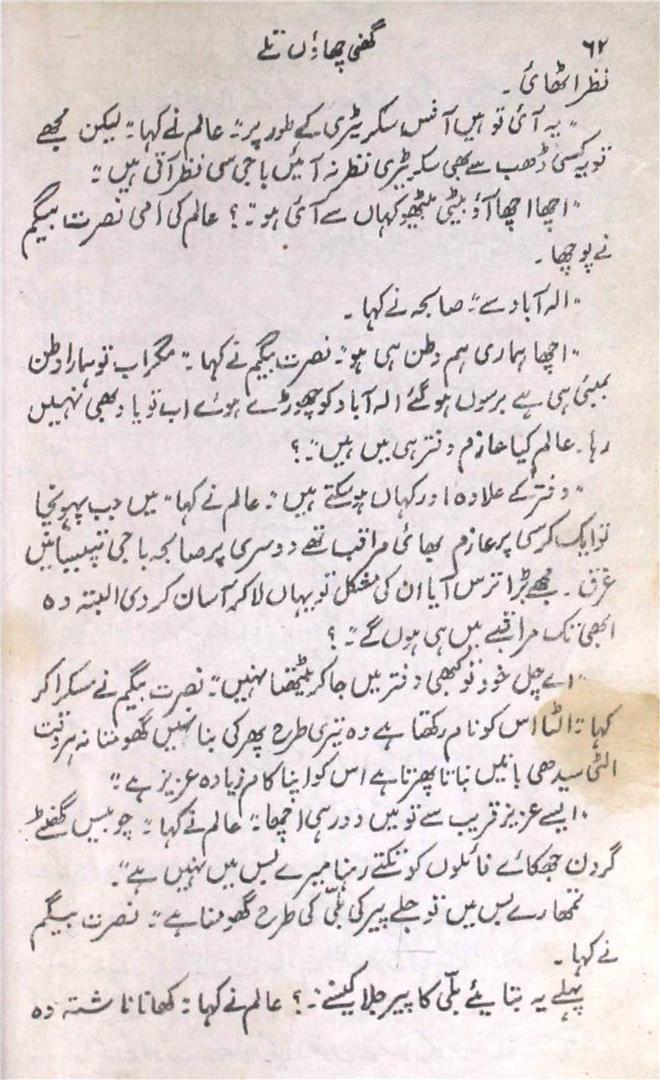 ۶۲ گھنی چھاؤں تلے
نظر اٹھائی ۔
" یہ آئی تو ہیں آفس سکریٹری کے طور پر ۔" عالم نے کہا " لیکن مجھے
تو یہ کسی ڈھب سے بھی سکریٹری نظر نہ آئیں باجی سی نظر آتی ہیں ۔"
" اچھا اچھا آؤ بیٹی بیٹھو کہاں سے آئی ہو ۔" ؟ عالم کی امی نصرت بیگم
نے پوچھا ۔
" الہ آباد سے ۔" صابحہ نے کہا ۔
" اچھا ہماری ہم وطن ہی ہو ۔" نصرت بیگم نے کہا ۔" مگر اب تو ہمارا وطن
بمبئی ہی ہے برسوں ہو گئے الہ آباد کو چھوڑے ہوئے اب تو یاد بھی نہیں
رہا ۔ عالم کیا عازم دفتر ہی میں ہیں ۔" ؟
" دفتر کے علاوہ اور کہاں ہو سکتے ہیں ۔" عالم نے کہا " میں جب پہونچا
تو ایک کرسی پر عازم بھائی مراقب تھے دوسری پر صابحہ باجی تپسیا میں
غرق ۔ مجھے بڑا ترس آیا ان کی مشکل تو یہاں لا کر آسان کر دی البتہ وہ
ابھی تک مراقبے میں ہی ہوں گے ۔" ؟
" اے چل خود تو کبھی دفتر میں جا کر بیٹھتا نہیں ۔" نصرت بیگم نے مسکرا کر
کہا ۔" الٹا اس کو نام رکھتا ہے وہ تیری طرح پھرکی بنا نہیں گھومتا نہ ہر وقت
الٹی سیدھی باتیں بناتا پھرتا ہے اس کو اپنا کام زیادہ عزیز ہے ۔"
" ایسے عزیز قریب سے تو میں دور ہی اچھا ۔" عالم نے کہا ۔" چوبیس گھنٹے
گردن جھکائے فائلوں کو تکتے رہنا میرے بس میں نہیں ہے ۔"
تمھارے بس میں تو جلے پیر کی بلّی کی طرح گھومنا ہے ۔" نصرت بیگم
نے کہا ۔
پہلے یہ بتایئے بلّی کا پیر جلا کیسے ۔" ؟ عالم نے کہا ۔" کھانا ناشتہ وہ